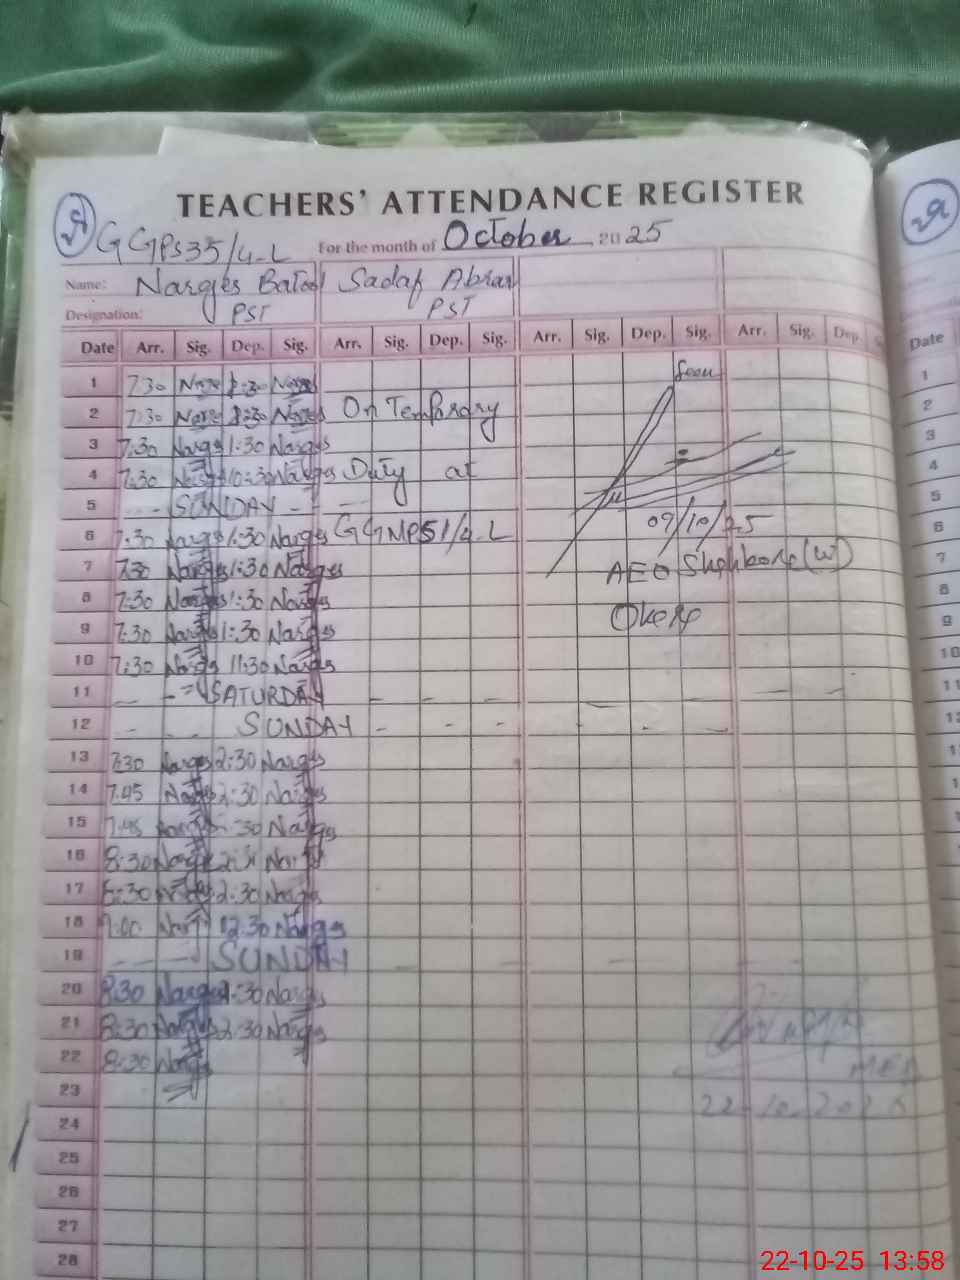 TEACHERS' ATTENDANCE REGISTER
GGPS35/4-L For the month of October 2025
Name: Narges Batool Sadaf Abrar
Designation: PST PST
Date Arr. Sig. Dep. Sig. Arr. Sig. Dep. Sig. Arr. Sig. Dep. Sig. Arr. Sig. Dep. Date
1 7:30 Narges Narges Seen 1
2 7:30 Narges Narges On Temporary 2
3 7:30 Narges 1:30 Narges 3
4 7:30 Narges 10:30 Narges Duty at 4
5 SUNDAY 5
6 7:30 Narges 1:30 Narges GGMPS 51/4-L 09/10/25 6
7 7:30 Narges 1:30 Narges AEO 7
8 7:30 Narges 1:30 Narges 8
9 7:30 Narges 1:30 Narges 9
10 7:30 Narges 11:30 Narges 10
11 SATURDAY 11
12 SUNDAY
13 7:30 Narges 2:30 Narges
14 7:45 Narges 2:30 Narges
15 7:45 Narges :30 Narges
16 8:30 Narges Narges
17 8:30 Narges 2:30 Narges
18 9:00 Narges 12:30 Narges
19 SUNDAY
20 8:30 Narges :30 Narges
21 8:30 Narges 2:30 Narges
22 8:30 Narges
23 22-10-2025
24
25
26
27
28
22-10-25 13:58